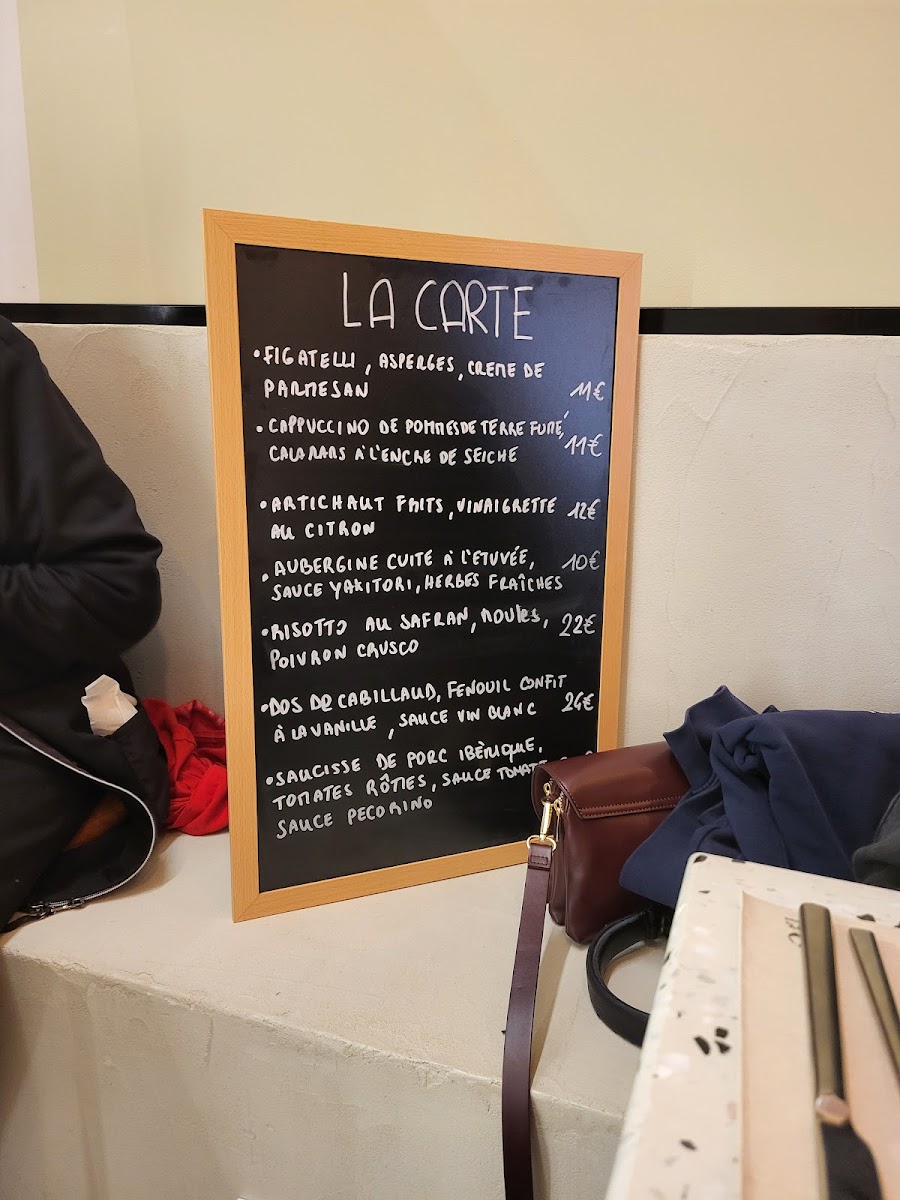 LA CARTE
•FIGATELLI, ASPERGES, CREME DE
PARMESAN 11€
•CAPPUCCINO DE POMMES DE TERRE FUMÉ,
CALAMARS À L'ENCRE DE SEICHE 11€
•ARTICHAUT FRITS, VINAIGRETTE 12€
AU CITRON
•AUBERGINE CUITE À L'ETUVÉE, 10€
SAUCE YAKITORI, HERBES FRAÎCHES
•RISOTTO AU SAFRAN, MOULES, 22€
POIVRON CRUSCO
•DOS DE CABILLAUD, FENOUIL CONFIT
À LA VANILLE, SAUCE VIN BLANC 24€
•SAUCISSE DE PORC IBÉRIQUE,
TOMATES RÔTIES, SAUCE
SAUCE PECORINO